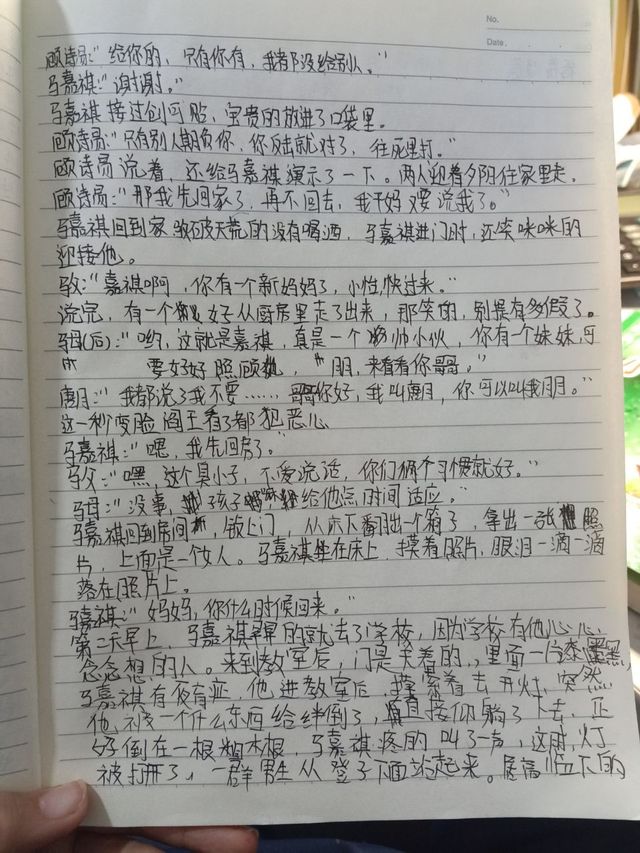 No.
Date.
顾诗员:"给你的,只有你有,我都没给别人。"
马嘉祺:"谢谢。"
马嘉祺接过创可贴,宝贵的放进了口袋里。
顾诗员:"只有别人期负你,你反击就对了,往死里打。"
顾诗员说着,还给马嘉祺演示了一下。两人迎着夕阳往家里走。
顾诗员:"那我先回家了,再不回去,我干妈又要说我了。"
马嘉祺回到家 破天荒的没有喝酒,马嘉祺进门时,还笑咪咪的
迎接他。
马父:"嘉祺啊,你有一个新妈妈了,小怡,快过来。"
说完,有一个女子从厨房里走了出来,那笑的,别提有多假了。
马母(后):"哟,这就是嘉祺,真是一个帅小伙,你有一个妹妹,可
要好好照顾,"月月,来看看你哥哥。"
唐月:"我都说了我不要……哥哥你好,我叫唐月,你可以叫我月月。"
这一秒变脸 阎王看了都犯恶心
马嘉祺:"嗯,我先回房了。"
马父:"嘿,这个臭小子,不爱说话,你们俩个习惯就好。"
马母:"没事,孩子嘛,给他点时间适应。"
马嘉祺回到房间,锁上门,从床下翻出一个箱子,拿出一张照
片,上面是一个女人。马嘉祺坐在床上,摸着照片,眼泪一滴一滴
落在照片上。
马嘉祺:"妈妈,你什么时候回来。"
第二天早上,马嘉祺早早的就去了学校,因为学校有他心心
念念想的人。来到教室后,门是关着的,里面一片漆黑,
马嘉祺有夜盲症,他进教室后,摸索着去开灯,突然
他被一个什么东西给绊倒了,直接仰躺了下去,正
好倒在一根木棍,马嘉祺疼的叫了一声,这时,灯
被打开了,一群男生从登子下面站起来。居高临下的